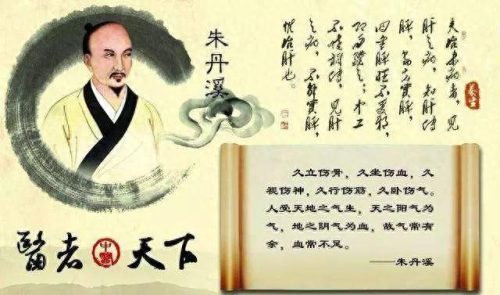 朱丹溪
夫治未病者，见
肝之病，知肝传
脾，当先实脾，
四季脾旺不受邪，
即勿补之；中工
不晓相传，见肝
之病，不解实脾，
惟治肝也。
久立伤骨，久坐伤血，久
视伤神，久行伤筋，久卧伤气。
人受天地之气生，天之阳气为
气，地之阴气为血，故气常有
余，血常不足。
——朱丹溪
醫者天下